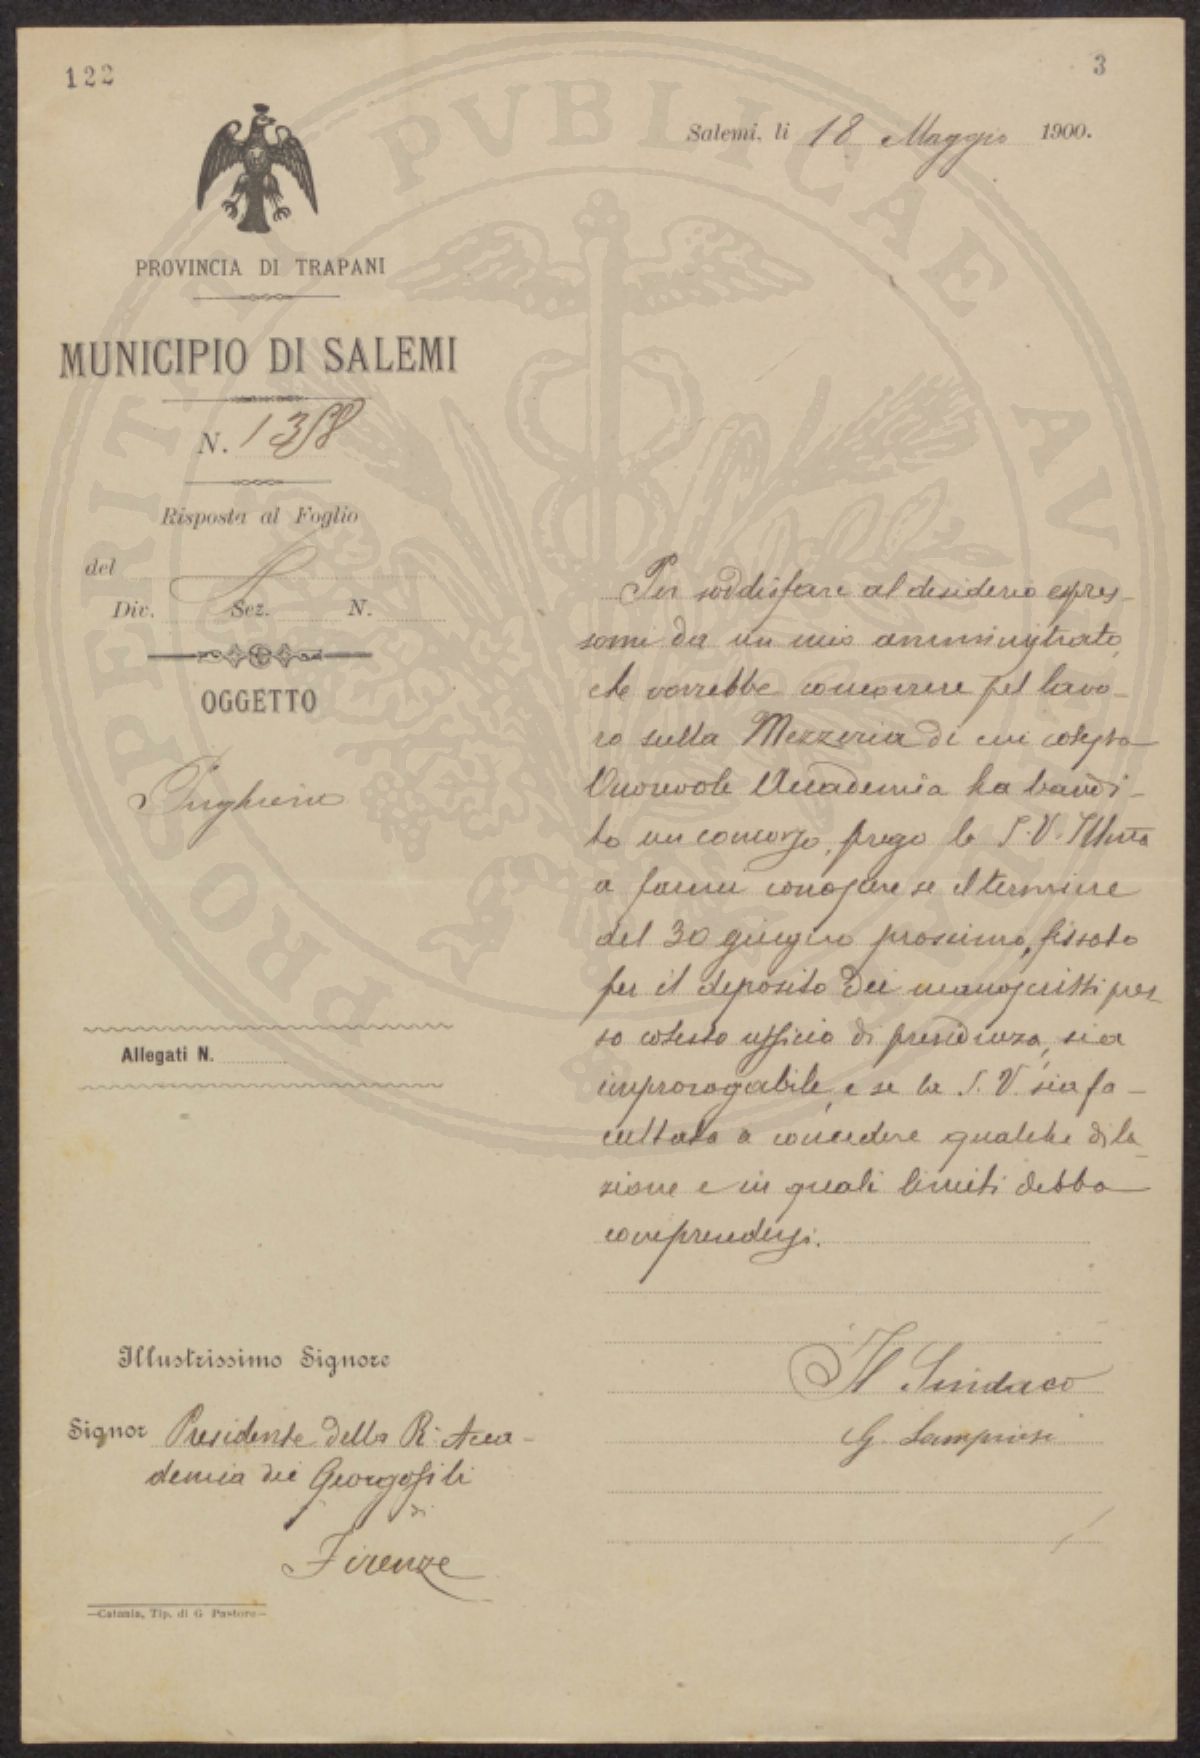 122
3
Salemi, li 18 Maggio 1900.
PROVINCIA DI TRAPANI
MUNICIPIO DI SALEMI
N. 1358
Risposta al Foglio
del
Div. Sez. N.
OGGETTO
Preghiera
Allegati N.
Illustrissimo Signore
Signor Presidente della R. Acca-
demia dei Georgofili
di
Firenze
Catania, Tip. di G. Pastore
Per soddisfare al desiderio espres-
somi da un mio amministrato,
che vorrebbe concorrere pel lavo-
ro sulla Mezzeria di cui cotesta
Onorevole Accademia ha bandi-
to un concorso, prego la S. V. Illma
a farmi conoscere se il termine
del 30 giugno prossimo, fissato
per il deposito dei manoscritti pres-
so cotesto ufficio di presidenza, sia
improrogabile, e se la S. V. sia fa-
cultata a concedere qualche dila-
zione e in quali limiti debba
comprendersi.
Il Sindaco
G. Lampiasi
PROSPERITATI PVBLICAE AVGENDAE